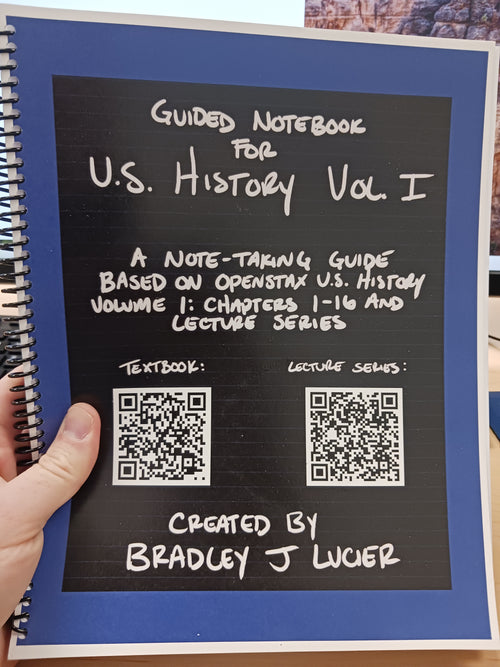 GUIDED NOTEBOOK
FOR
U.S. HISTORY VOL. I
A NOTE-TAKING GUIDE
BASED ON OPENSTAX U.S. HISTORY
VOLUME 1: CHAPTERS 1-16 AND
LECTURE SERIES
TEXTBOOK:
LECTURE SERIES:
CREATED BY
BRADLEY J LUCIER